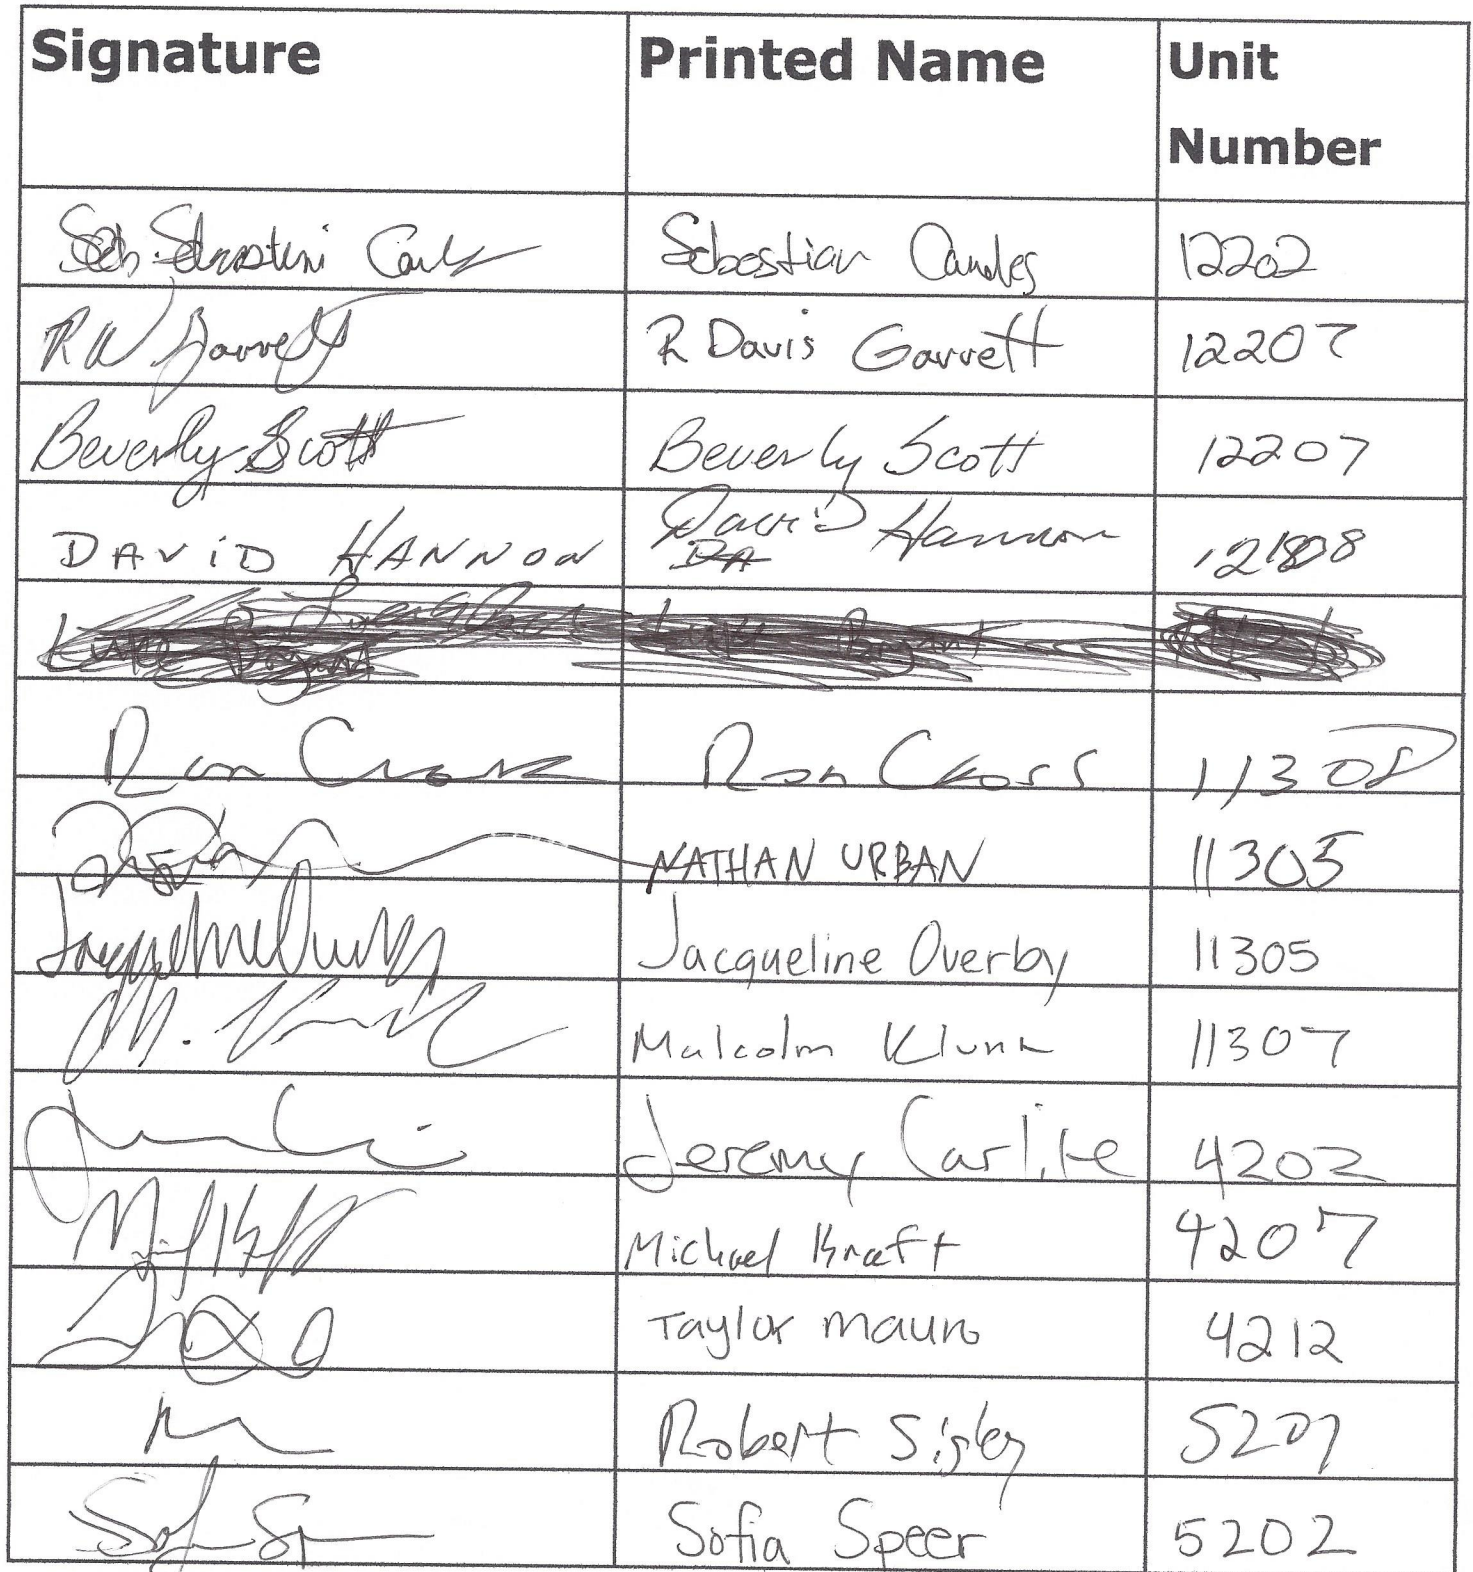 Signature Printed Name Unit
Number
Sebastian Candes 12202
R Davis Garrett 12207
Beverly Scott Beverly Scott 12207
DAViD HANNON David Hannon
DA
Luke Bryant
Ron Cross Ron Cross 11308
NATHAN URBAN 11305
Jacqueline Overby 11305
M. Malcolm Klunk 11307
Jeremy Carlile 4202
Michael Kraft 4207
Taylor mauro 4212
Robert Sigley 5207
Sofia Speer 5202